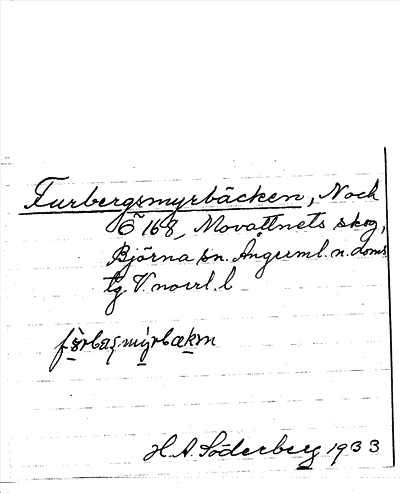 Furbergsmyrbäcken, Noch
Ö 168, Movattnets skog,
Björna sn. Ångerml. n. doms
tg V. norrl. l
H. A. Söderberg 1933